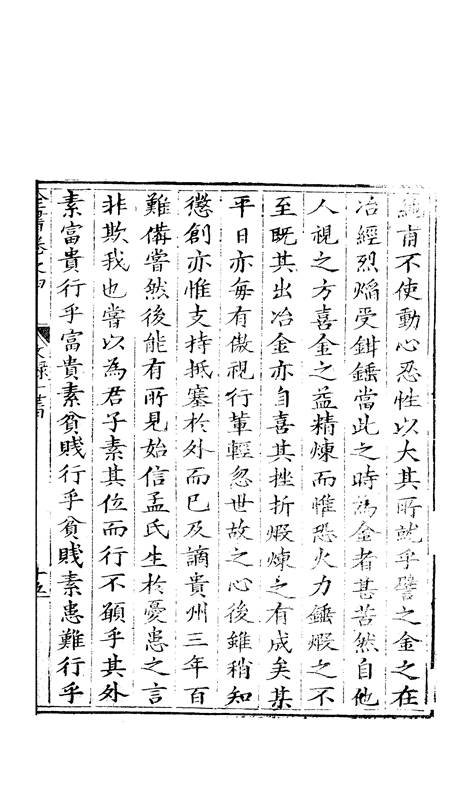 純甫不使動心忍性以大其所就乎譬之金之在
冶經烈焰受鉗錘當此之時為金者甚苦然自他
人視之方喜金之益精煉而惟恐火力錘煅之不
至既其出冶金亦自喜其挫折煅煉之有成矣某
平日亦每有傲視行輩輕忽世故之心後雖稍知
懲創亦惟支持抵塞於外而已及謫貴州三年百
難備嘗然後能有所見始信孟氏生於憂患之言
非欺我也嘗以為君子素其位而行不願乎其外
素富貴行乎富貴素貧賤行乎貧賤素患難行乎
全書卷之四 文錄一書 十五